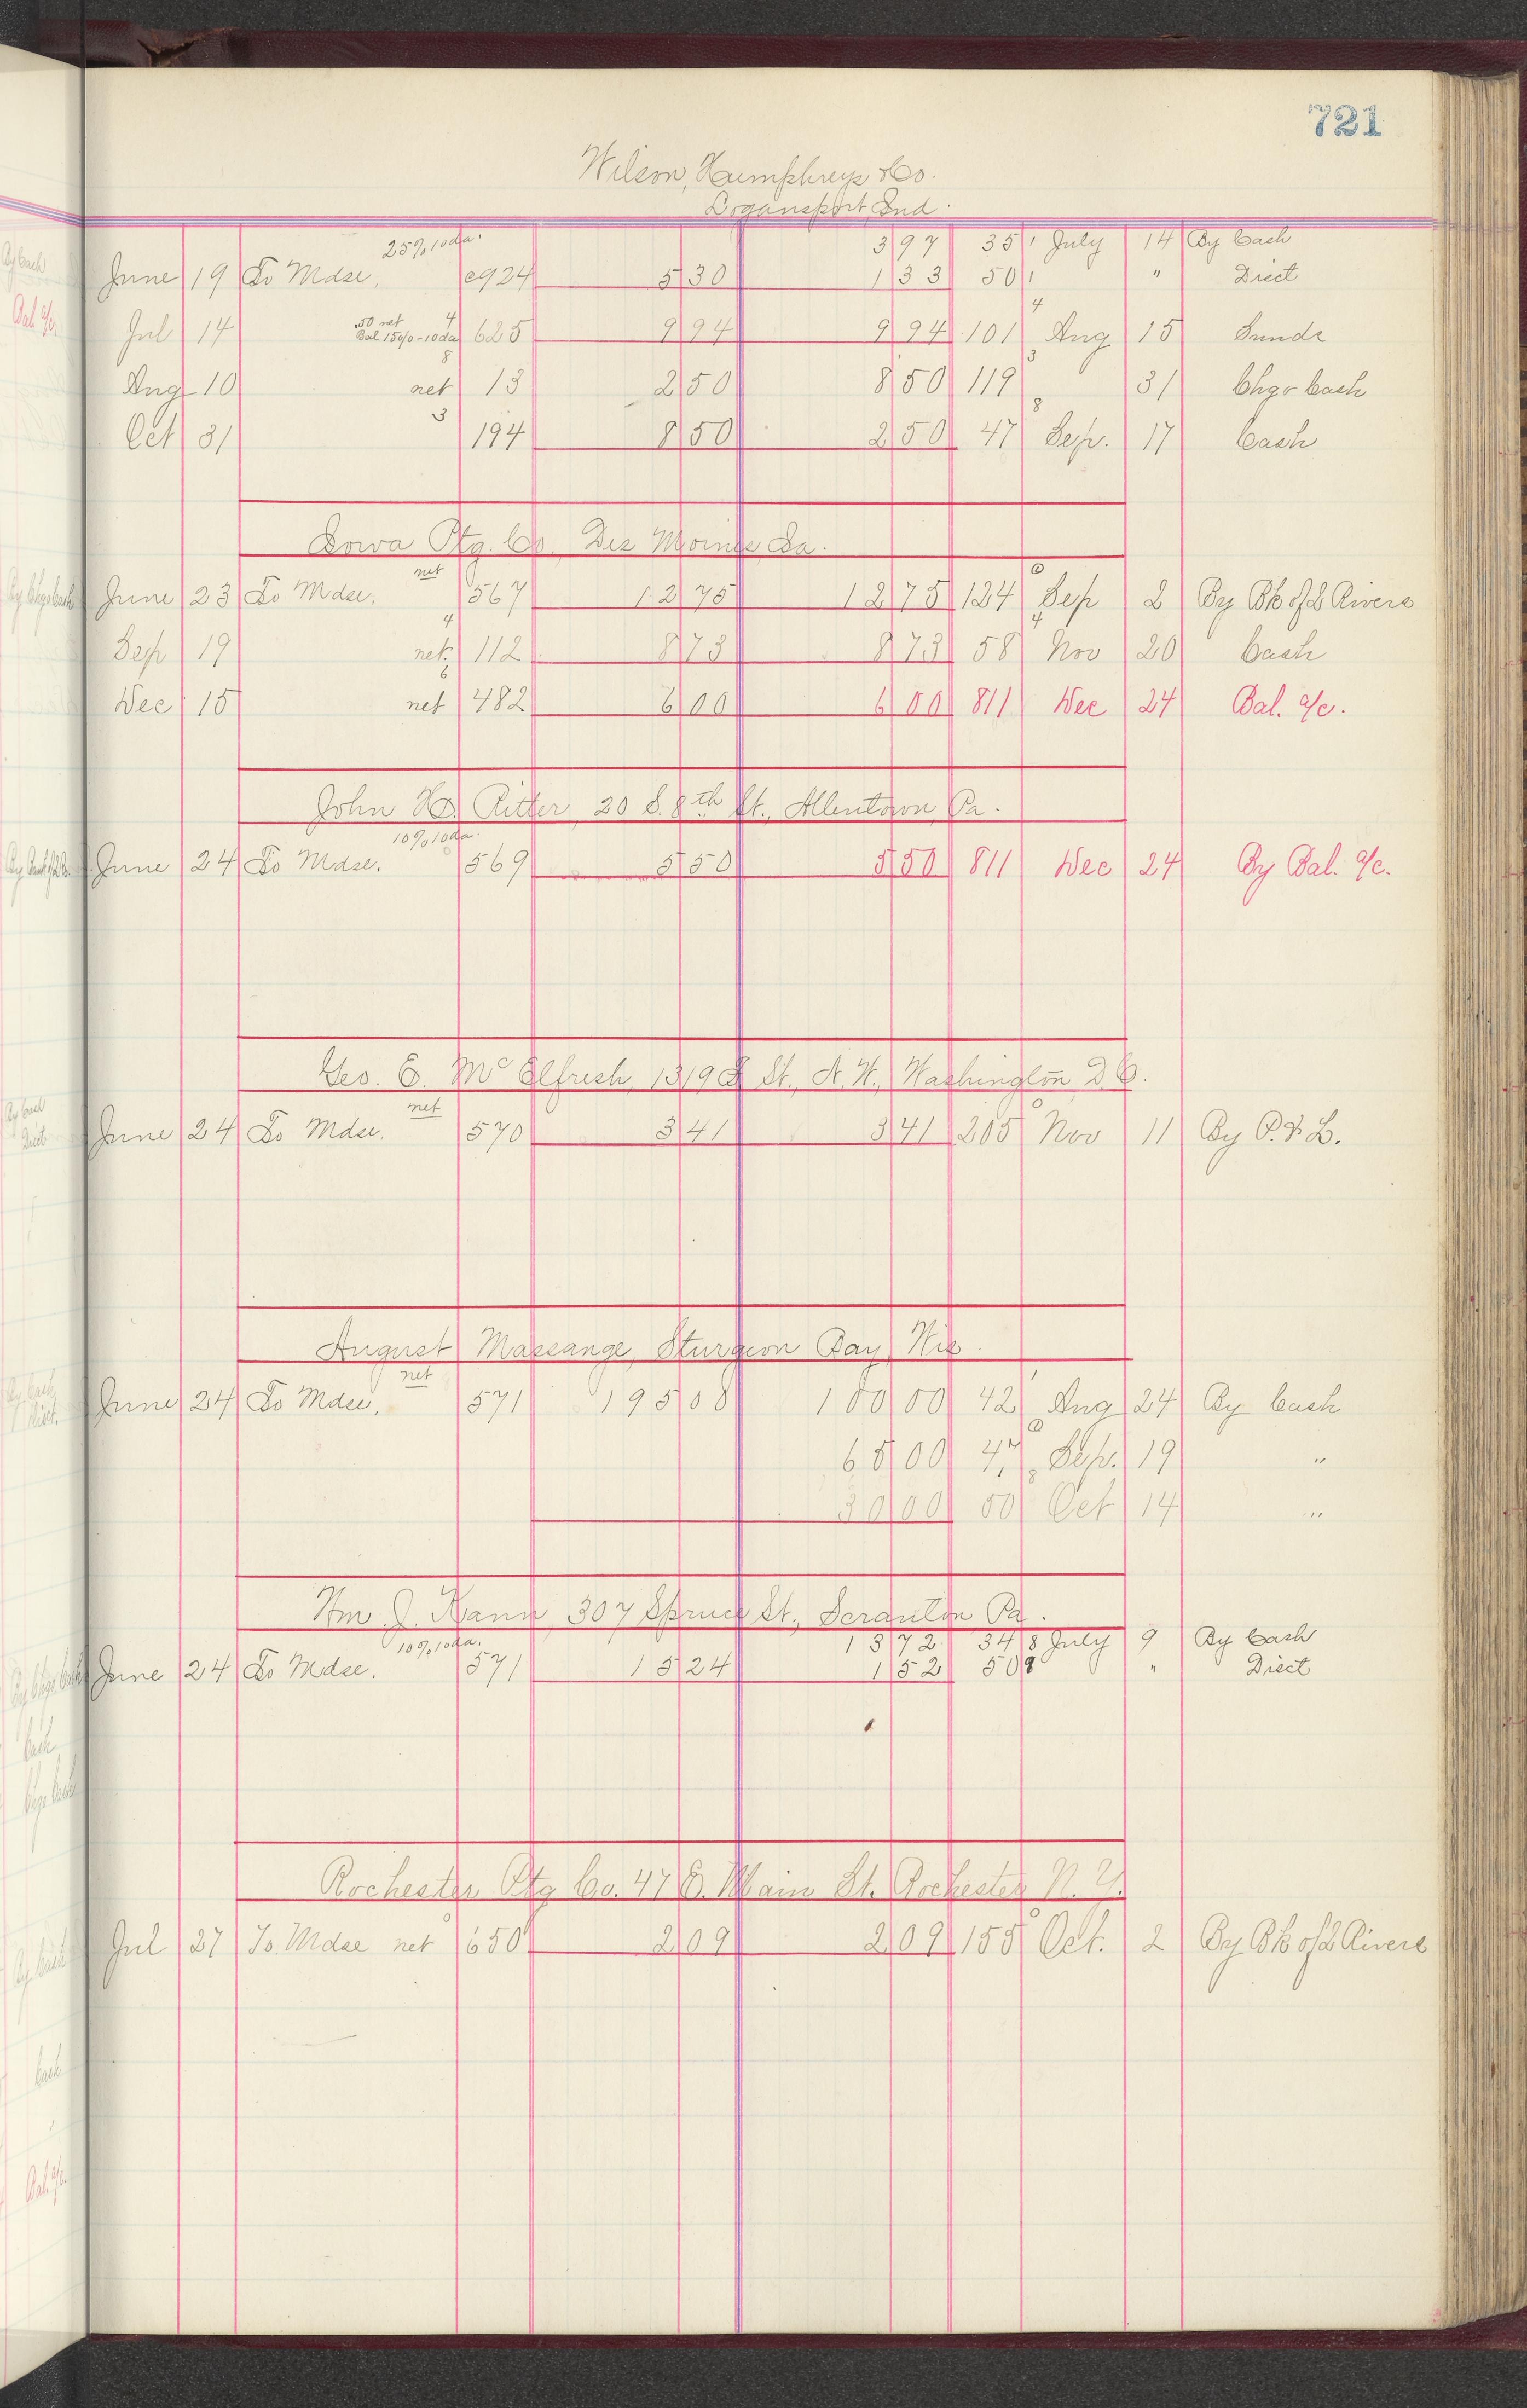 721
Wilson, Humphreys & Co.
Logansport Ind.
25% 10 da. 3 97 35 1 July 14 By Cash
June 19 To Mdse. e924 5 30 1 33 50 1 " Disct
.50 net 4 4
Jul 14 Bal 15% - 10 da 625 9 94 9 94 101 Aug 15 Sunds
8 3
Aug 10 net 13 2 50 8 50 119 31 Chgo Cash
3 8
Oct 31 194 8 50 2 50 47 Sep. 17 Cash
Iowa Ptg. Co. Des Moines Ia.
net
June 23 To Mdse. 567 12 75 12 75 124 Sep 2 By Bk of 2 Rivers
4 4
Sep 19 net. 112 8 73 8 73 58 Nov 20 Cash
6
Dec 15 net 482 6 00 6 00 811 Dec 24 Bal. a/c.
John H. Ritter, 20 S. 8th St., Allentown, Pa.
10% 10 da.
June 24 To Mdse. 569 5 50 5 50 811 Dec 24 By Bal. a/c.
Geo. E. McElfresh, 1319 F St., N.W., Washington D.C.
net 0
June 24 To Mdse. 570 3 41 3 41 205 Nov 11 By P. & L.
August Massange, Sturgeon Bay, Wis.
net 1
June 24 To Mdse. 571 195 08 100 00 42 Aug 24 By Cash
65 00 47 Sep. 19 "
8
30 00 50 Oct 14 "
Wm. J. Kann, 307 Spruce St., Scranton Pa.
10% 10 da. 13 72 34 8 July 9 By Cash
June 24 To Mdse. 571 15 24 1 52 50 8 " Disct
Rochester Ptg Co. 47 E. Main St. Rochester N.Y.
0 0
Jul 27 To Mdse net 650 2 09 2 09 155 Oct. 2 By Bk of 2 Rivers